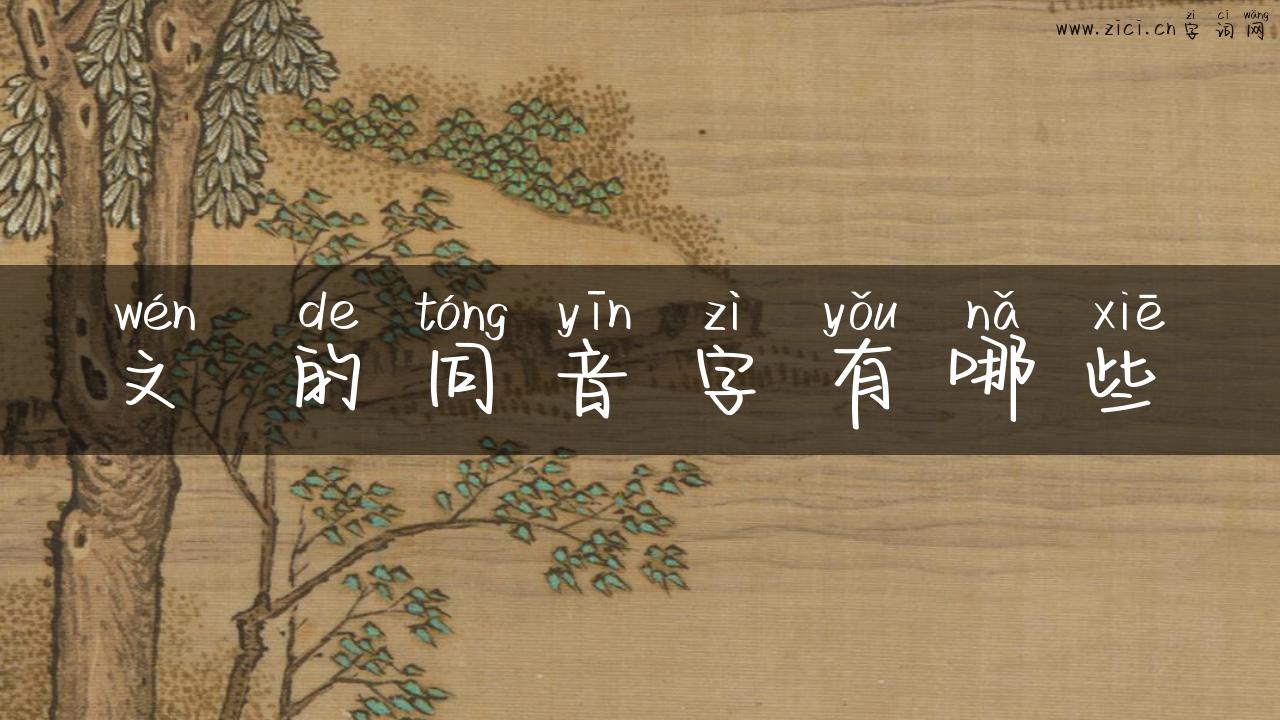 zì cí wǎng
www.zici.cn 字词网
wén de tóng yīn zì yǒu nǎ xiē
文的同音字有哪些